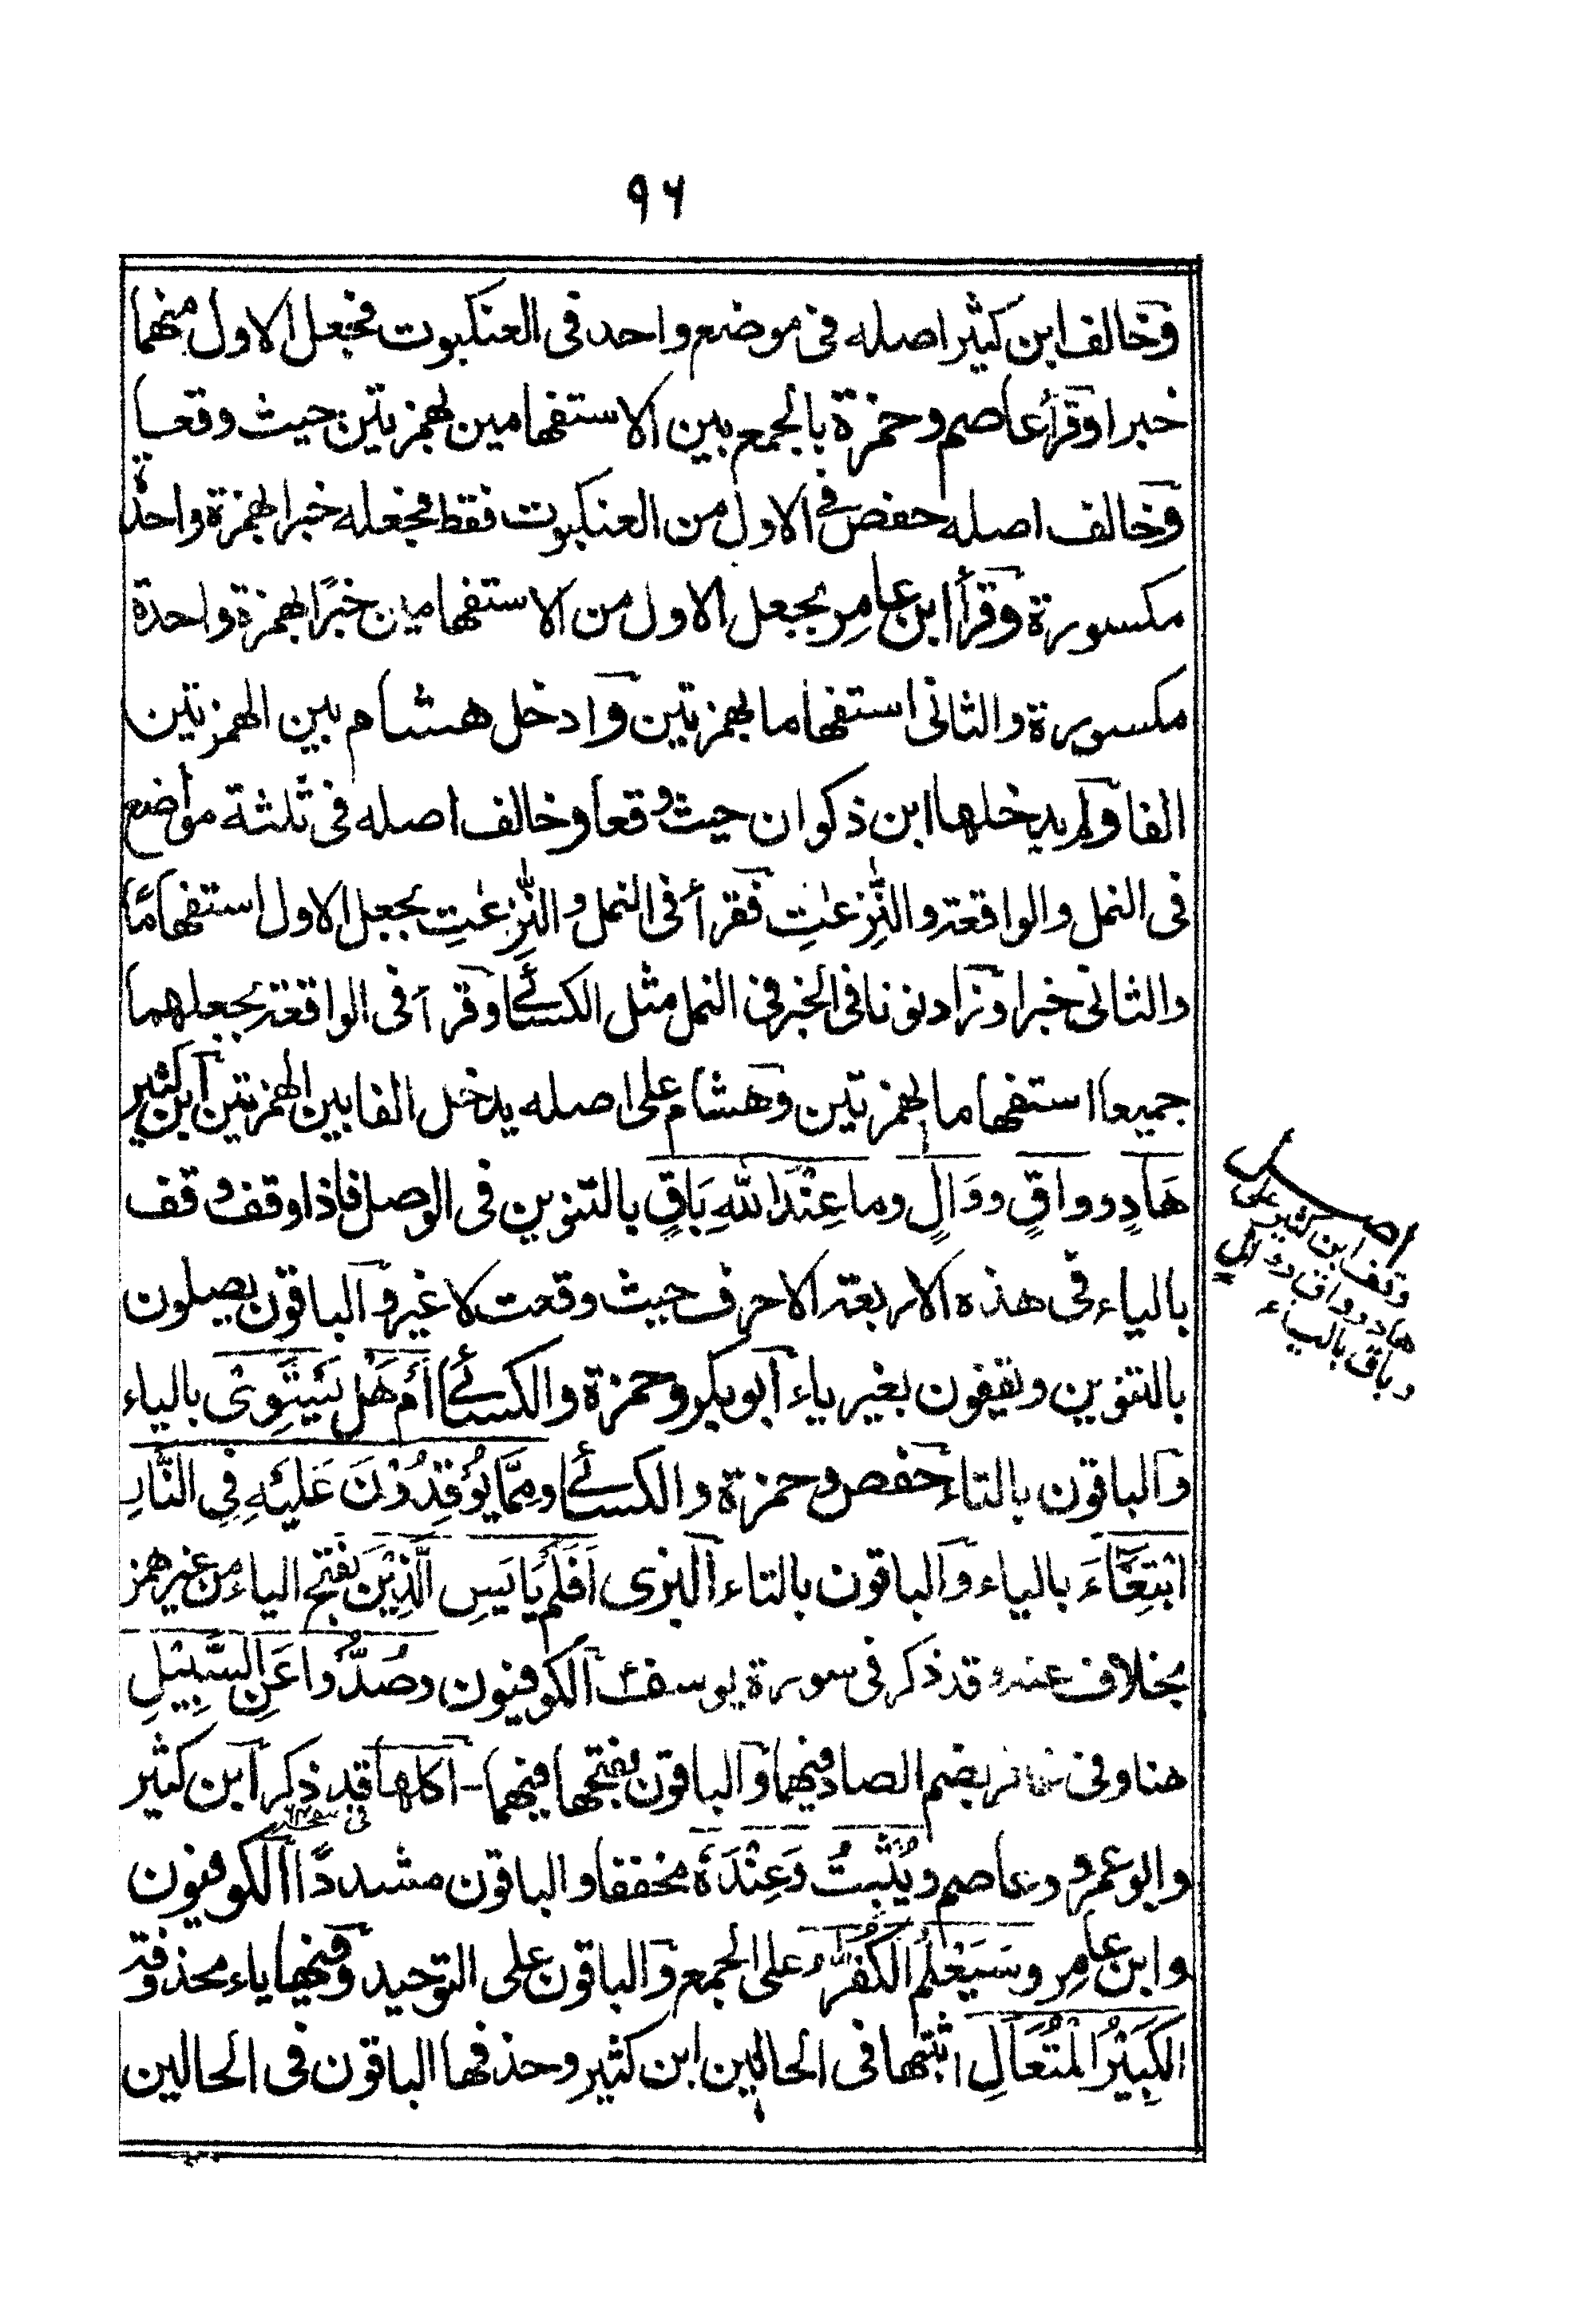 ٩٦
وخالف ابن كثير اصله فى موضع واحد فى العنكبوت فجعل الاول منهما
خبرا وقرأ عاصم وحمزة بالجمع بين الاستفهامين بهمزتين حيث وقعا
وخالف اصله حفص فى الاول من العنكبوت فقط فجعله خبرا بهمزة واحدة
مكسورة وقرأ ابن عامِر بجعل الاول من الاستفهامين خبرًا بهمزة واحدة
مكسورة والثانى استفهاما بهمزتين وادخل هشام بين الهمزتين
الفا ولم يدخلها ابن ذكوان حيث وقعا وخالف اصله فى ثلثة مواضع
فى النمل والواقعة والنّٰزِعٰتِ فقرأ فى النمل والنّٰزِعٰتِ بجعل الاول استفهامًا
والثانى خبرا وزاد نونا فى الخبر فى النمل مثل الكسائے وقرأ فى الواقعة بجعلهما
جميعا استفهاما بهمزتين وهشام على اصله يدخل الفا بين الهمزتين ابن كثير
هَادٍ وواقٍ ووَالٍ وما عِنْدَ اللّٰهِ بَاقٍ بالتنوين فى الوصل فاذا وقف وقف
بالياء فى هذه الاربعة الاحرف حيث وقعت لا غير والباقون يصلون
بالتنوين ويقفون بغير ياء ابو بكر وحمزة والكسائے اَمْ هَلْ يَسْتَوِىْ بالياء
والباقون بالتاء حفص وحمزة والكسائے ومِمَّا يُوْقِدُوْنَ عَلَيْهِ فِى النَّارِ
ابْتِغَآءَ بالياء والباقون بالتاء البزى اَفَلَمْ يَايَسِ الَّذِيْنَ بفتح الياء من غير همز
بخلاف عنه وقد ذكر فى سورة يوسف الكوفيون وصُدُّوا عَنِ السَّبِيْلِ
هنا وفى غافر بضم الصاد فيهما والباقون بفتحها فيهما - اكلها قد ذكر ابن كثير
وابو عمرو وعاصم ويُثْبِتُ وَعِنْدَهٗ مخففا والباقون مشددًا الكوفيون
وابن عامِر وسَيَعْلَمُ الْكُفّٰرُ على الجمع والباقون على التوحيد وفيها ياء محذوفة
الكَبِيْرُ الْمُتَعَالِ اثبتها فى الحالين ابن كثير وحذفها الباقون فى الحالين
اصل
وقف ابن كثير على
هاد وواق ووالٍ
وباق بالياء